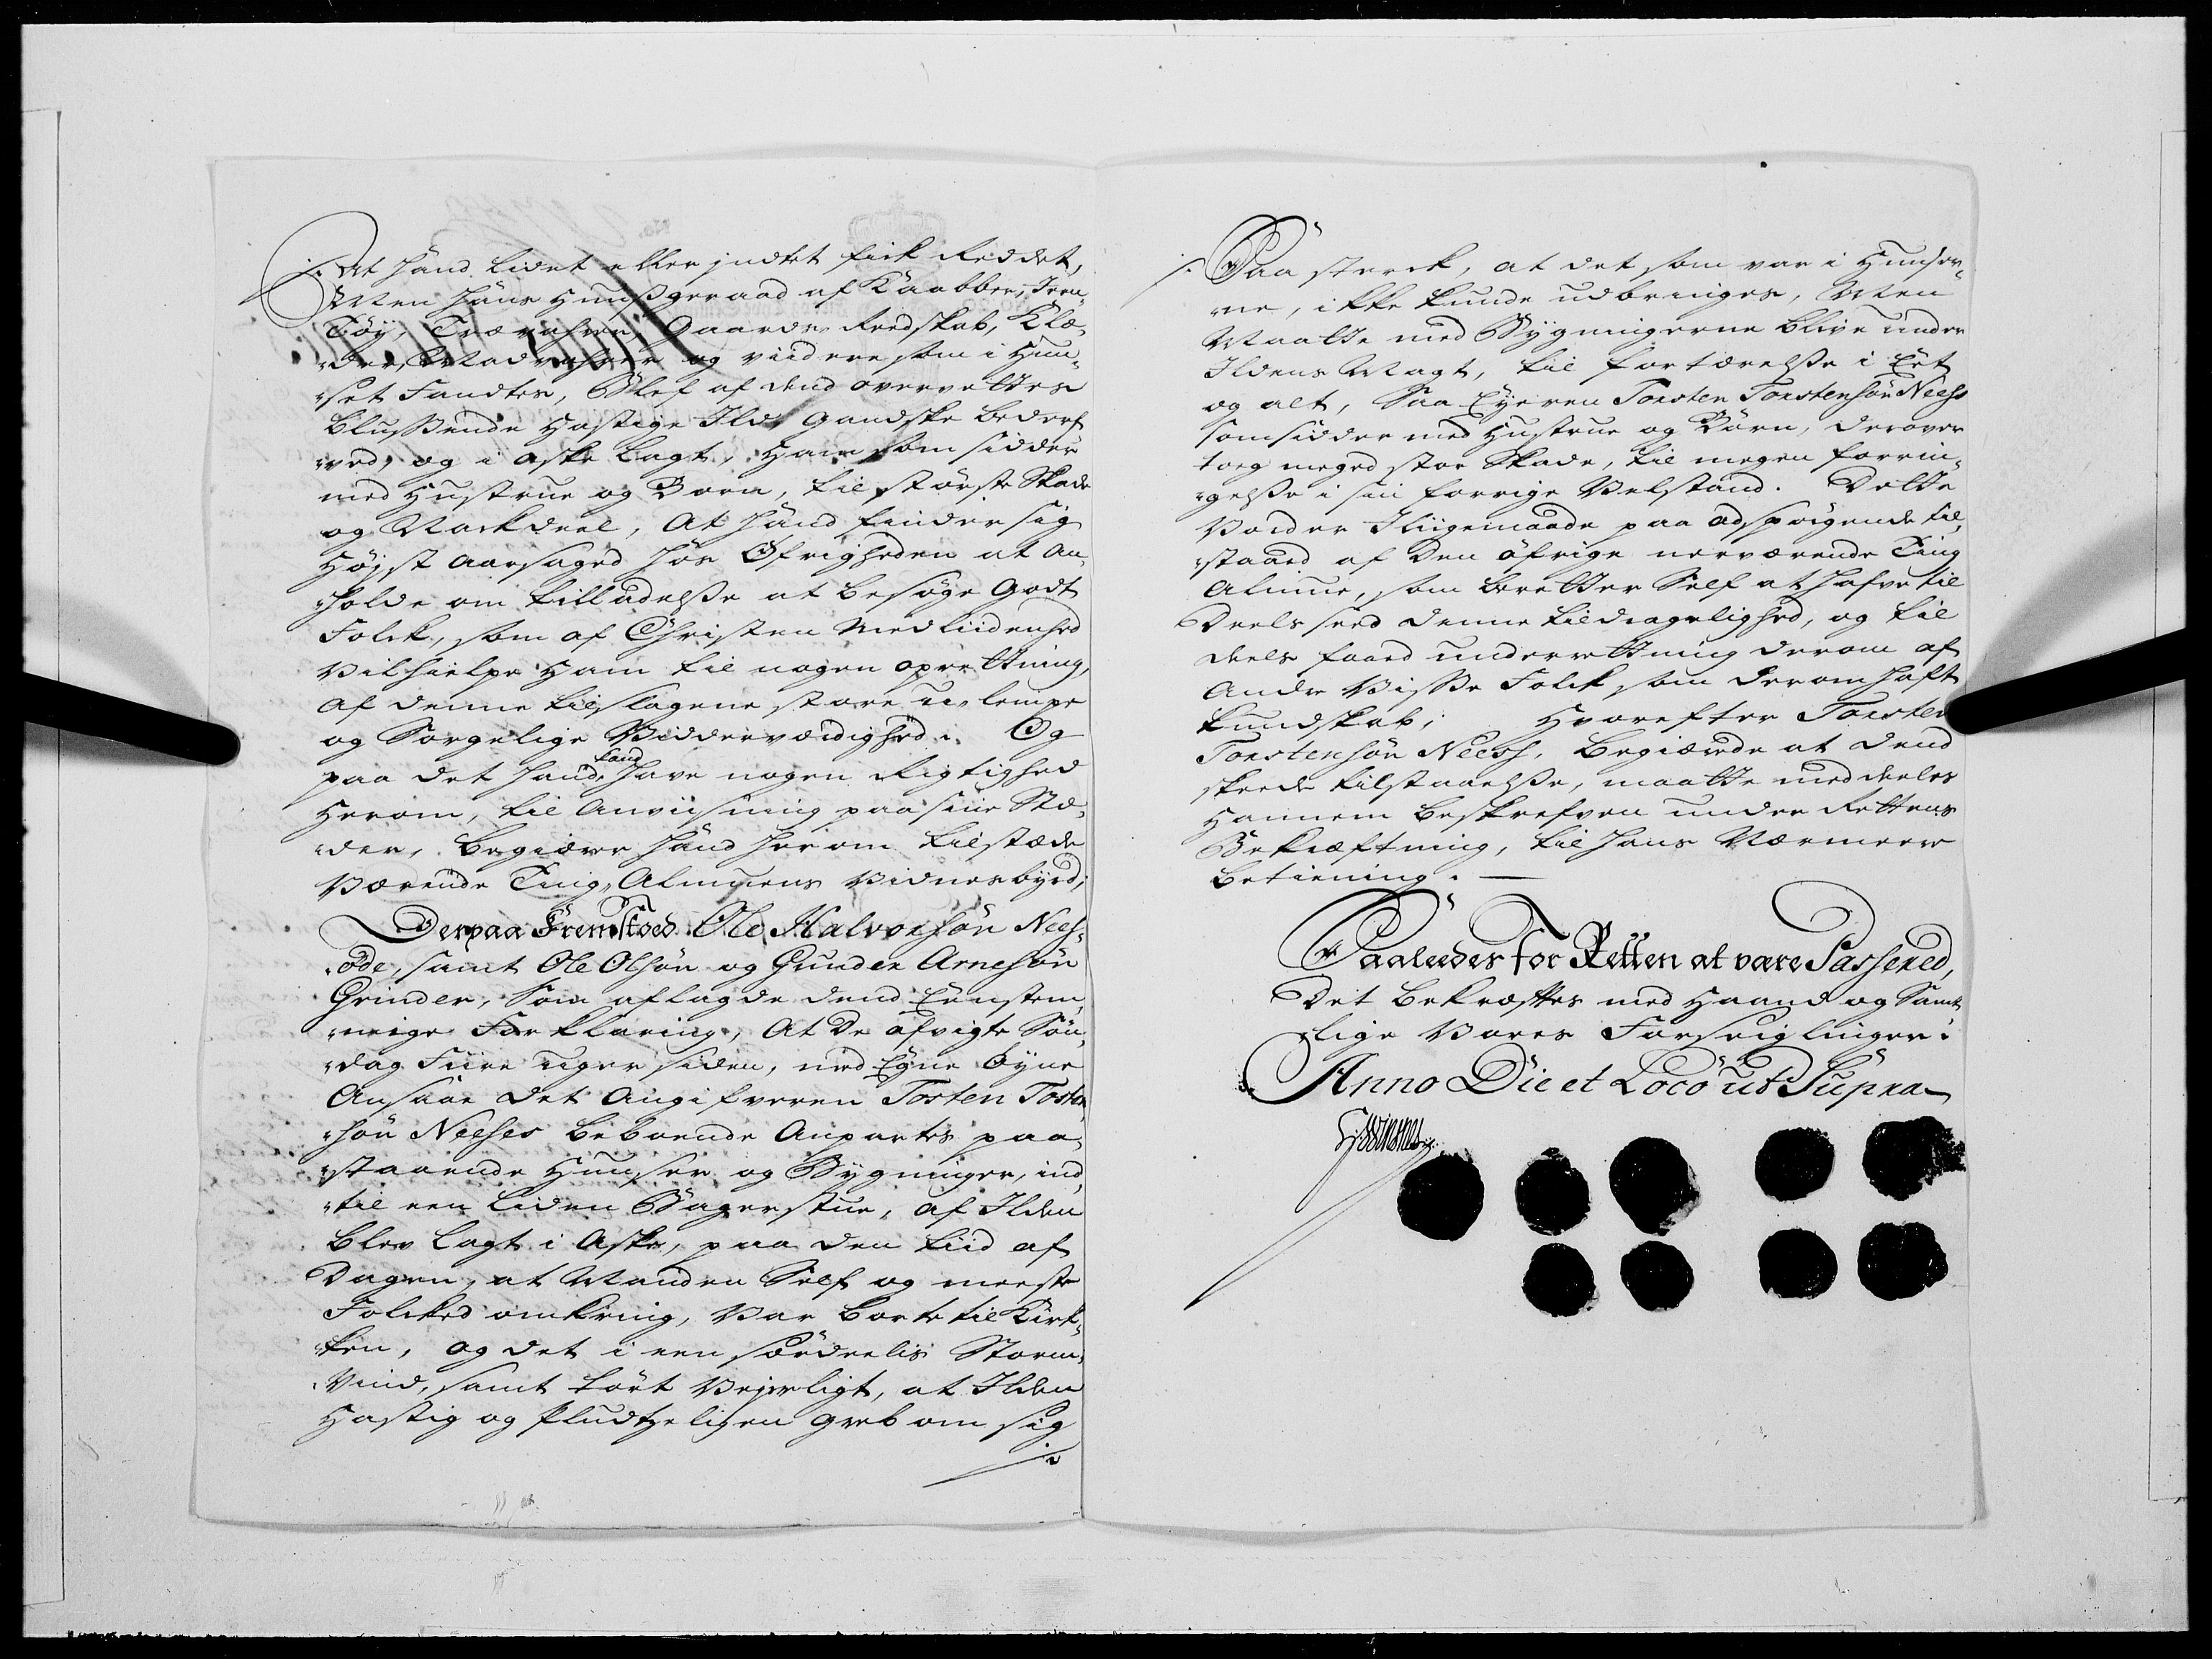 /: At Hånd lidet eller indtet fick Reddet,
Men Håns Hunsgeraad af Kaabber, Jern-
Töy, Trævahrer, Gaards Reedskab, Klæ-
der, Madvahrer og viidere som i Huu-
set Fandtes, Blef af dend overvettes
blussende Hastige Ild, gandske bederf-
ved, og i Aske Lagt, Ham som sidder
med Hustrue og Börn, til störste Skade
og Nachdeel, At Hånd finder sig
Höjst aarsaged Hos Öfrigheden at an-
holde om tilladelsse at besöge Godt
Folck, som af Christen Medliidenhed
Vil hielpe Ham til nogen oprettning,
af denne tilslagene store u-lempe
og Sorgelige Viddervædighed. Og
paa det Hånd kand have nogen Rigtighed
Herom, til Anviisning paa sine Stæ-
der, begiærer Hånd herom tilstæde
Værende Ting-Almuens Vidnesbyrd;
Derpaa Fremstoed Ole Halvorsön Nees-
öde, samt Ole Olsön og Gunder Arnesön
Grinder, Som aflagde dend Eenstem-
mige Forklaring, At De afvigte Sön-
dag Fiire uger siden, med Egne Öyne
Ansaae det Angifveren Torsten Torsten-
sön Neeses beboende Anpartes paa-
staaende Huuser og Bygninger, ind-
til een liden Bagerstue, af Ilden
blev lagt i Aske, paa den tiid af
Dagen, at Manden Self og meeste
Folcked omkring, Var borte til Kirk-
ken, og det i een særdeelis Storm-
Vind, samt tört Vejerligt, at Ilden
Hastig og Pludtzeligen greb om sig
/:
/: Saa sterck, at det som var i Huuser-
ne, ikke kunde udbringes, Men
Maatte med Bygningerne blive under
Ildens Magt, til fortærelsse i Eet
og alt, Saa Eyeren Torsten Torstensön Neess
som sidder med Hustrue og Börn, derover
toeg meged stor Skade, til megen forrin-
gelsse i sin forrige Velstand. Dette
Vorder Iliigemaade paa adspörgende til-
staaed af den öfrige nerværende Ting
Almue, som beretter Self at hafve til
Deels seed denne tildragelighed, og til
deels faaed underrettning derom af
Andre Visse Folck, som derom haft
kundskab; Hvorefter Torsten
Torstensön Neess, begiærede at dend
skeede tilstaaelsse, maatte meddeeles
Hannem beskrefven under Rettens
Bekræftning, til Hans Nærmere
betiening. —
Saaledes for Retten at være Passered,
Det bekræftes med Haand og Samt-
lige Vores Forseiglinger.
Anno Die et Loco ut Supra